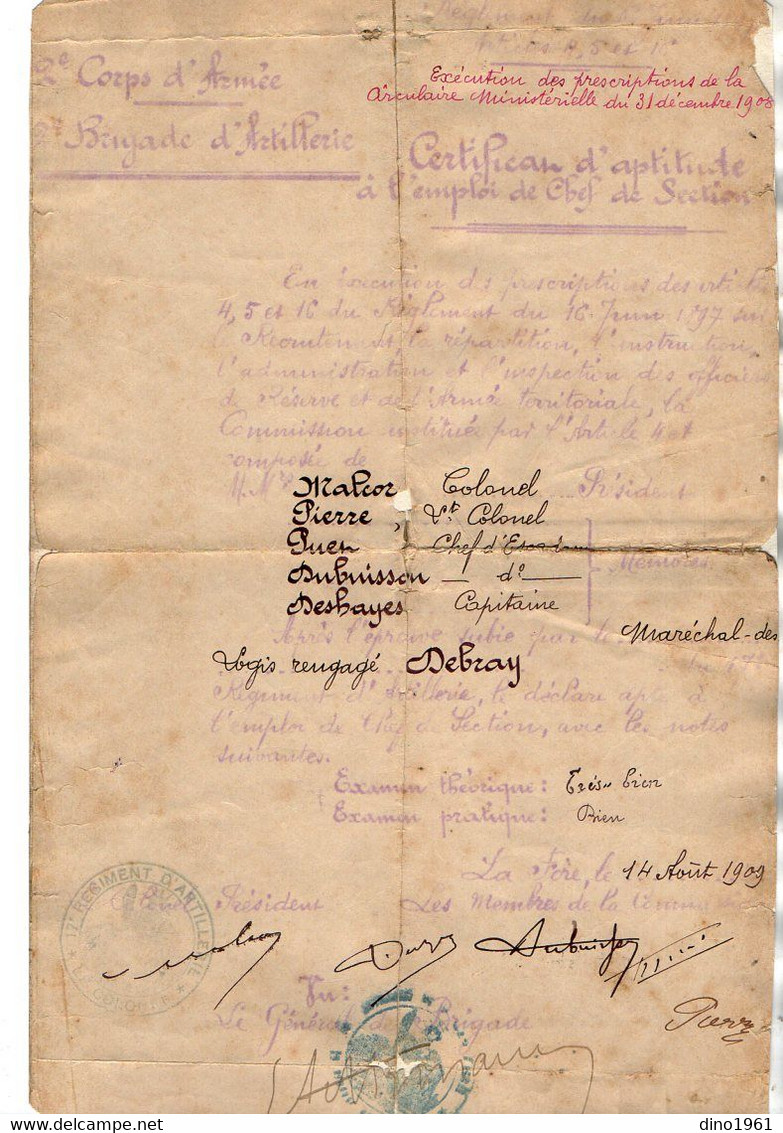 Règlement du 16 Juin
Articles 4, 5 et 16
2e Corps d'Armée
Exécution des prescriptions de la
Circulaire Ministérielle du 31 décembre 1908
2e Brigade d'Artillerie
Certificat d'aptitude
à l'emploi de Chef de Section
En exécution des prescriptions des articles
4, 5 et 16 du Règlement du 16 Juin 1897 sur
le Recrutement la répartition, l'instruction,
l'administration et l'inspection des officiers
de Réserve et de l'Armée territoriale, la
Commission instituée par l'Article 4 et
composée de
M.Mrs
Malcor Colonel Président
Pierre, Lt Colonel
Puen Chef d'Escadron
Membres
Dubuisson — do —
Deshayes Capitaine
Après l'épreuve subie par le Maréchal-des
Logis rengagé Debray du 17e
Régiment d'Artillerie, le déclare apte à
l'emploi de Chef de Section, avec les notes
suivantes.
Examen théorique: Très bien
Examen pratique: Bien
La Fère, le 14 Août 1909
Le Colonel Président
Les Membres de la Commission
17e REGIMENT D'ARTILLERIE
LE COLONEL
Dubuisson
Vu:
Le Général de Brigade
Pierre
dino1961